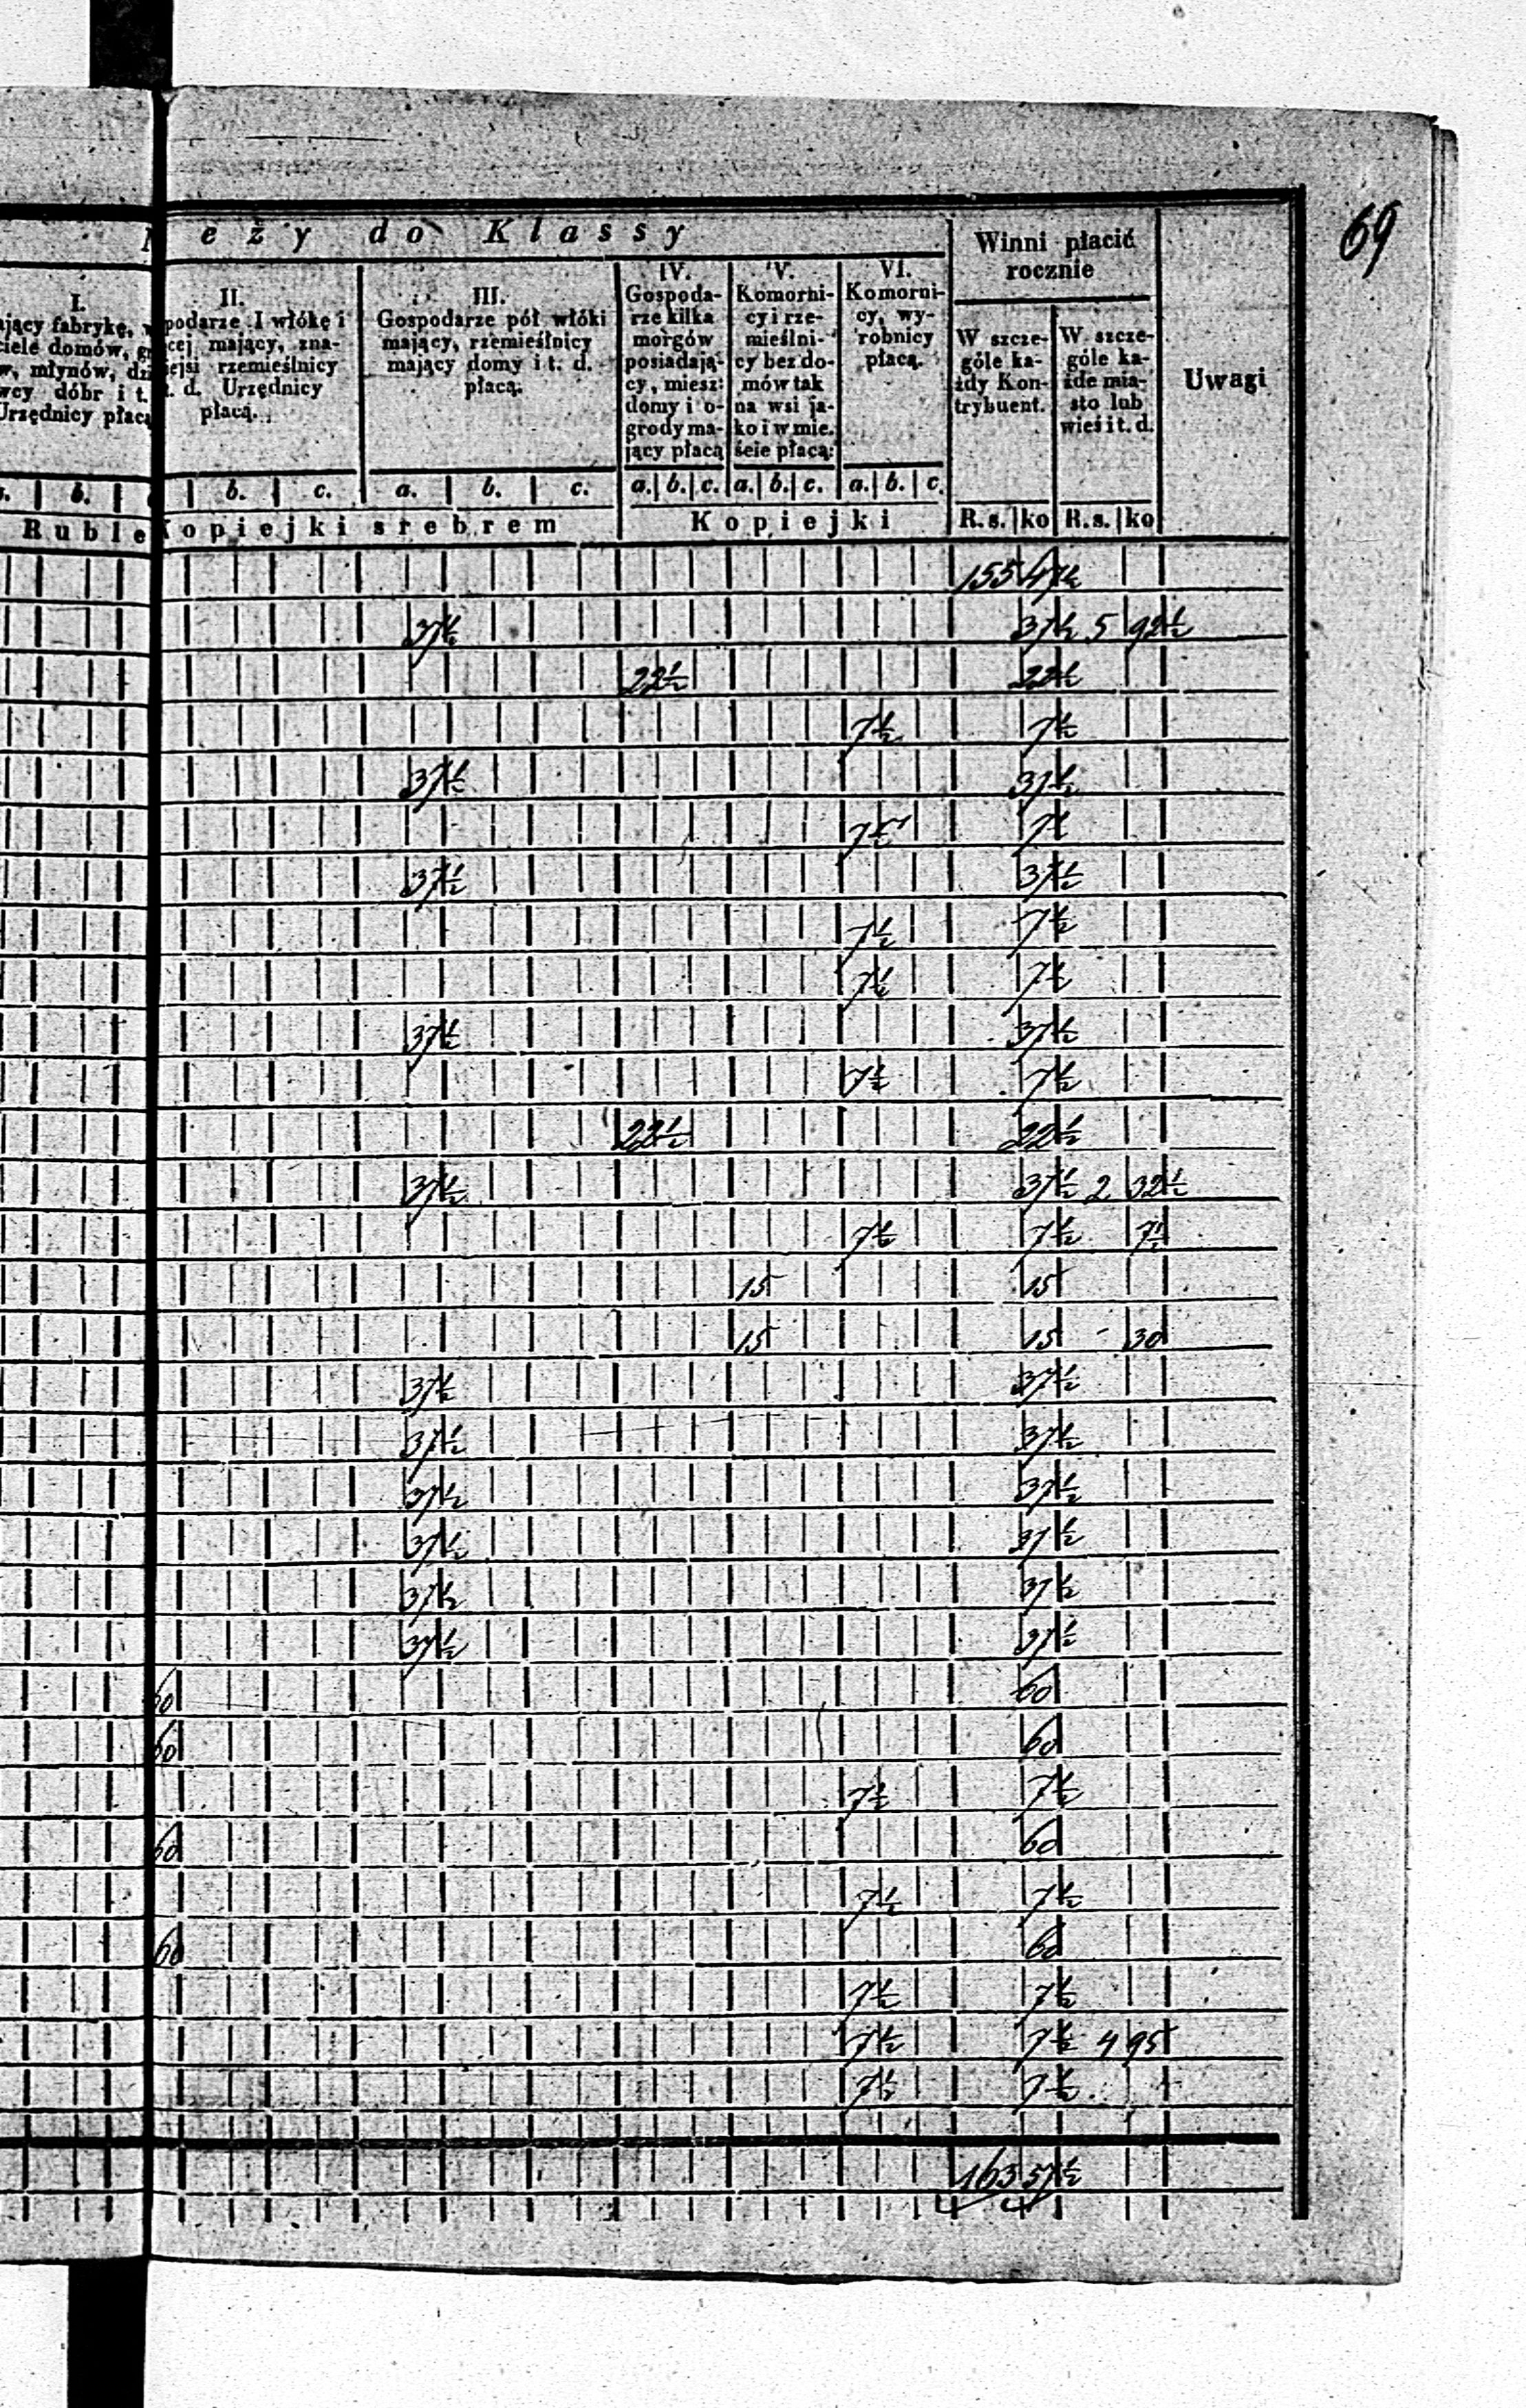 69
eży do Klassy
Winni płacić rocznie
Uwagi
I.
jący fabrykę,
ciele domów,
w, młynów,
wcy dóbr i t.
Urzędnicy płacą
II.
podarze I włókę i
cej mający, zna-
iejsi rzemieślnicy
t. d. Urzędnicy
płacą.
III.
Gospodarze pół włóki
mający, rzemieślnicy
mający domy i t. d.
płacą:
IV.
Gospoda-
rze kilka
morgów
posiadają-
cy, miesz:
domy i o-
grody ma-
jący płacą
V.
Komorni-
cy i rze-
mieślni-
cy bez do-
mów tak
na wsi ja-
ko i w mie.
ście płacą:
VI.
Komorni-
cy, wy-
robnicy
płacą.
W szcze-
góle ka-
żdy Kon-
trybuent.
W szcze-
góle ka-
żde mia-
sto lub
wieś i t. d.
b. b. c. a. b. c. a. b. c. a. b. c. a. b. c.
Ruble Kopiejki srebrem Kopiejki R.s. ko R.s. ko
155 47½
37½ 37½ 5 92½
22½ 22½
7½ 7½
37½ 37½
7½ 7½
37½ 37½
7½ 7½
7½ 7½
37½ 37½
7½ 7½
22½ 22½
37½ 37½ 2 32½
7½ 7½ 7½
15 15
15 15 - 30
37½ 37½
37½ 37½
37½ 37½
37½ 37½
37½ 37½
37½ 37½
60 60
60 60
7½ 7½
60 60
7½ 7½
60 60
7½ 7½
7½ 7½ 4 95
7½ 7½
163 57½